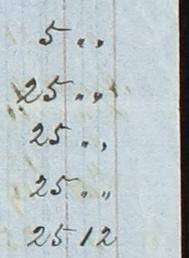 5 〃
25 〃
25 〃
25 〃
25 12